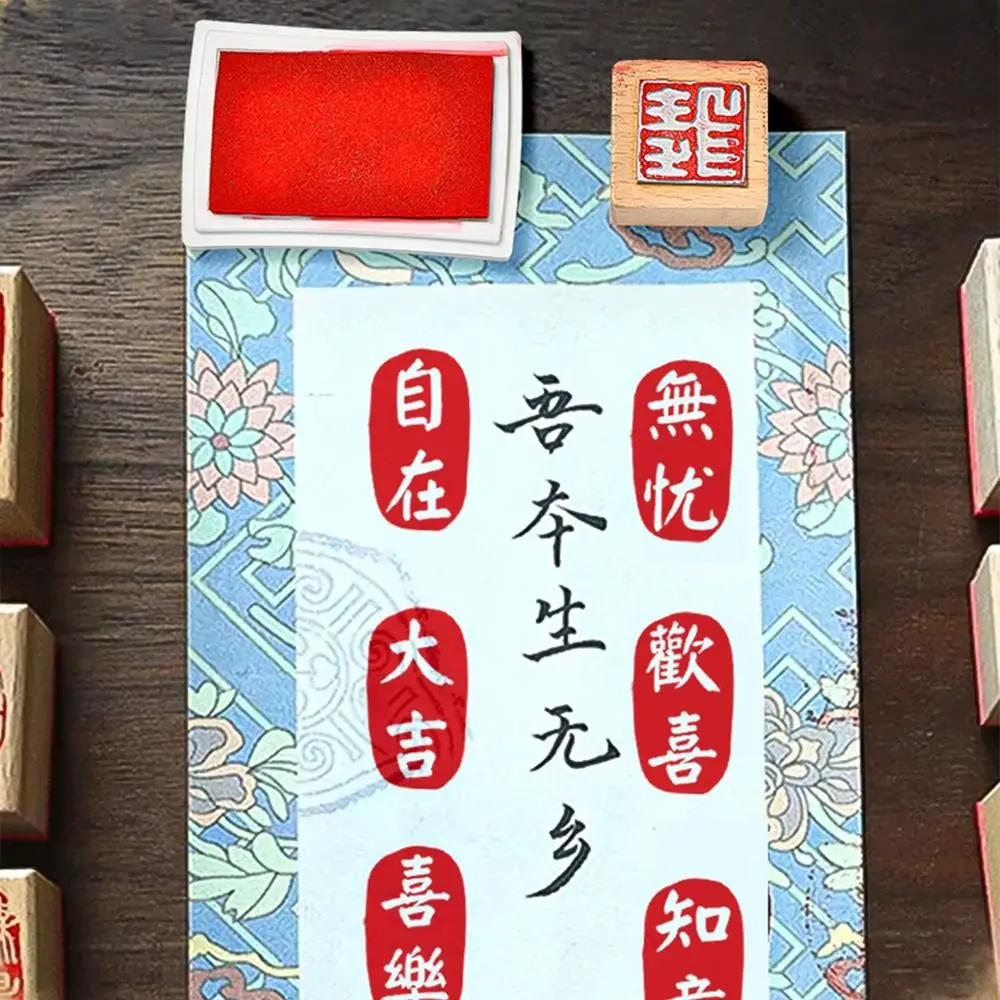 無忧
歡喜
知
吾本生无乡
自在
大吉
喜樂